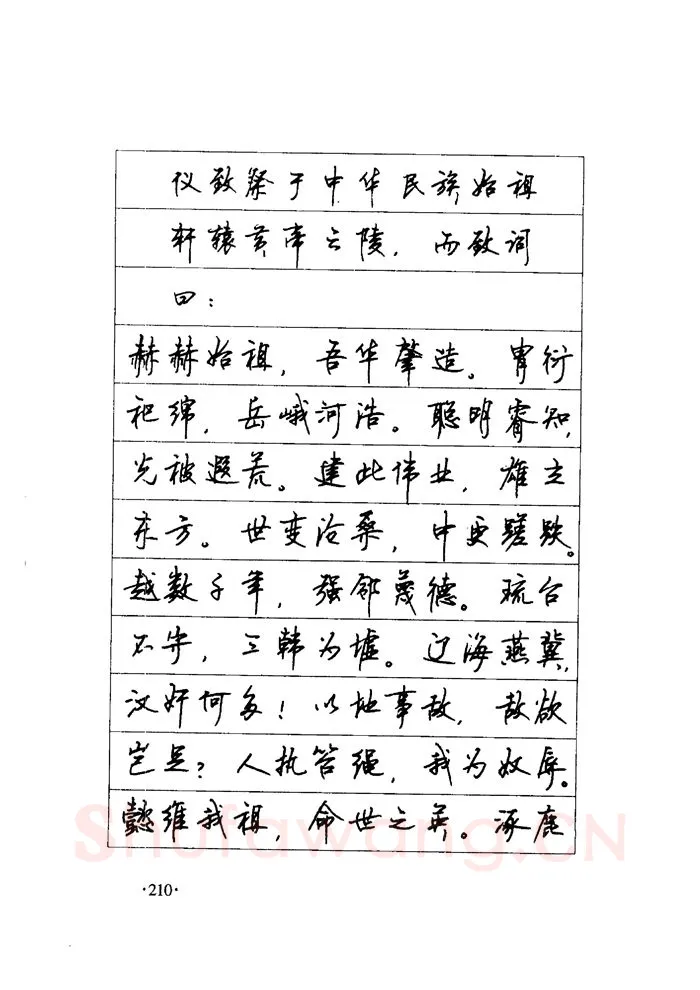 仪致祭于中华民族始祖
轩辕黄帝之陵，而致词
曰：
赫赫始祖，吾华肇造。胄衍
祀绵，岳峨河浩。聪明睿知，
光被遐荒。建此伟业，雄立
东方。世变沧桑，中更蹉跌。
越数千年，强邻蔑德。琉台
不守，三韩为墟。辽海燕冀，
汉奸何多！以地事敌，敌欲
岂足？人执笞绳，我为奴辱。
懿维我祖，命世之英。涿鹿
·210·
Shufawang.CN